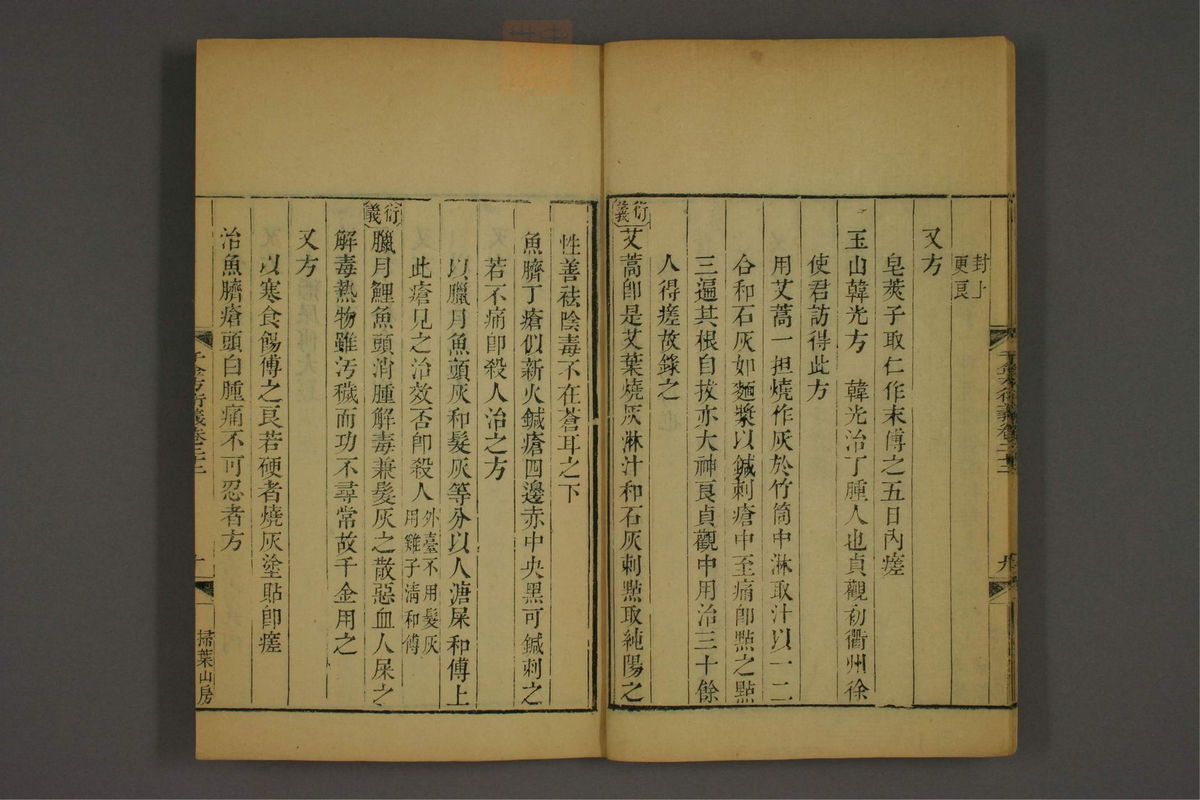 封上
更良
又方
皂莢子取仁作末傅之五日內瘥
玉山韓光方　韓光治丁腫人也貞觀初衢州徐
使君訪得此方
用艾蒿一担燒作灰於竹筒中淋取汁以一二
合和石灰如麵漿以鍼刺瘡中至痛卽㸃之㸃
三遍其根自拔亦大神良貞觀中用治三十餘
人得瘥故錄之
衍義 艾蒿卽是艾葉燒灰淋汁和石灰刺㸃取純陽之
性善祛陰毒不在蒼耳之下
魚臍丁瘡似新火鍼瘡四邊赤中央黑可鍼刺之
若不痛卽殺人治之方
以臘月魚頭灰和髮灰等分以人溏屎和傅上
此瘡見之治效否卽殺人 外臺不用髮灰
用雞子淸和傅
衍義 臘月鯉魚頭消腫解毒兼髮灰之散惡血人屎之
解毒熱物雖汚穢而功不尋常故千金用之
又方
以寒食餳傅之良若硬者燒灰塗貼卽瘥
治魚臍瘡頭白腫痛不可忍者方
千金方衍義卷二十二
掃葉山房